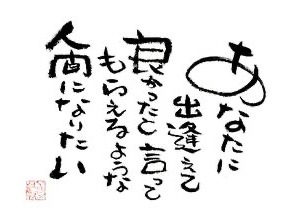 あなたに
出逢えて
良かったと言って
もらえるような
人間になりたい